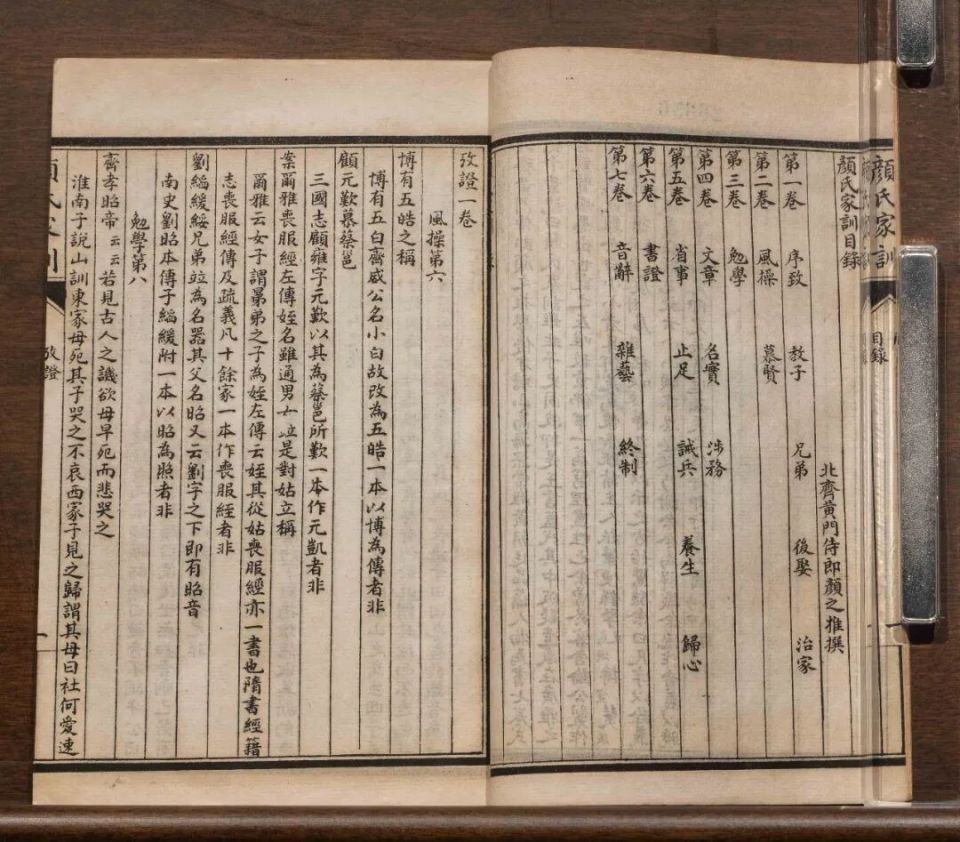 顏氏家訓
目錄
顏氏家訓目錄
北齊黃門侍郎顏之推撰
第一卷 序致 教子 兄弟 後娶 治家
第二卷 風操 慕賢
第三卷 勉學
第四卷 文章 名實 涉務
第五卷 省事 止足 誡兵 養生 歸心
第六卷 書證
第七卷 音辭 雜藝 終制
攷證一卷
風操第六
博有五皓之稱
博有五白齊威公名小白故改為五皓一本以博為傳者非
顧元歎慕蔡邕
三國志顧雍字元歎以其為蔡邕所歎一本作元凱者非
案爾雅喪服經左傳姪名雖通男女竝是對姑立稱
爾雅云女子謂晜弟之子為姪左傳云姪其從姑喪服經亦一書也隋書經籍
志喪服經傳及疏義凡十餘家一本作喪服絰者非
劉縚緩綏兄弟竝為名器其父名昭又云劉字之下即有昭音
南史劉昭本傳子縚緩附一本以昭為照者非
勉學第八
齊孝昭帝云云若見古人之譏欲母早死而悲哭之
淮南子說山訓東家母死其子哭之不哀西家子見之歸謂其母曰社何愛速
攷證
一